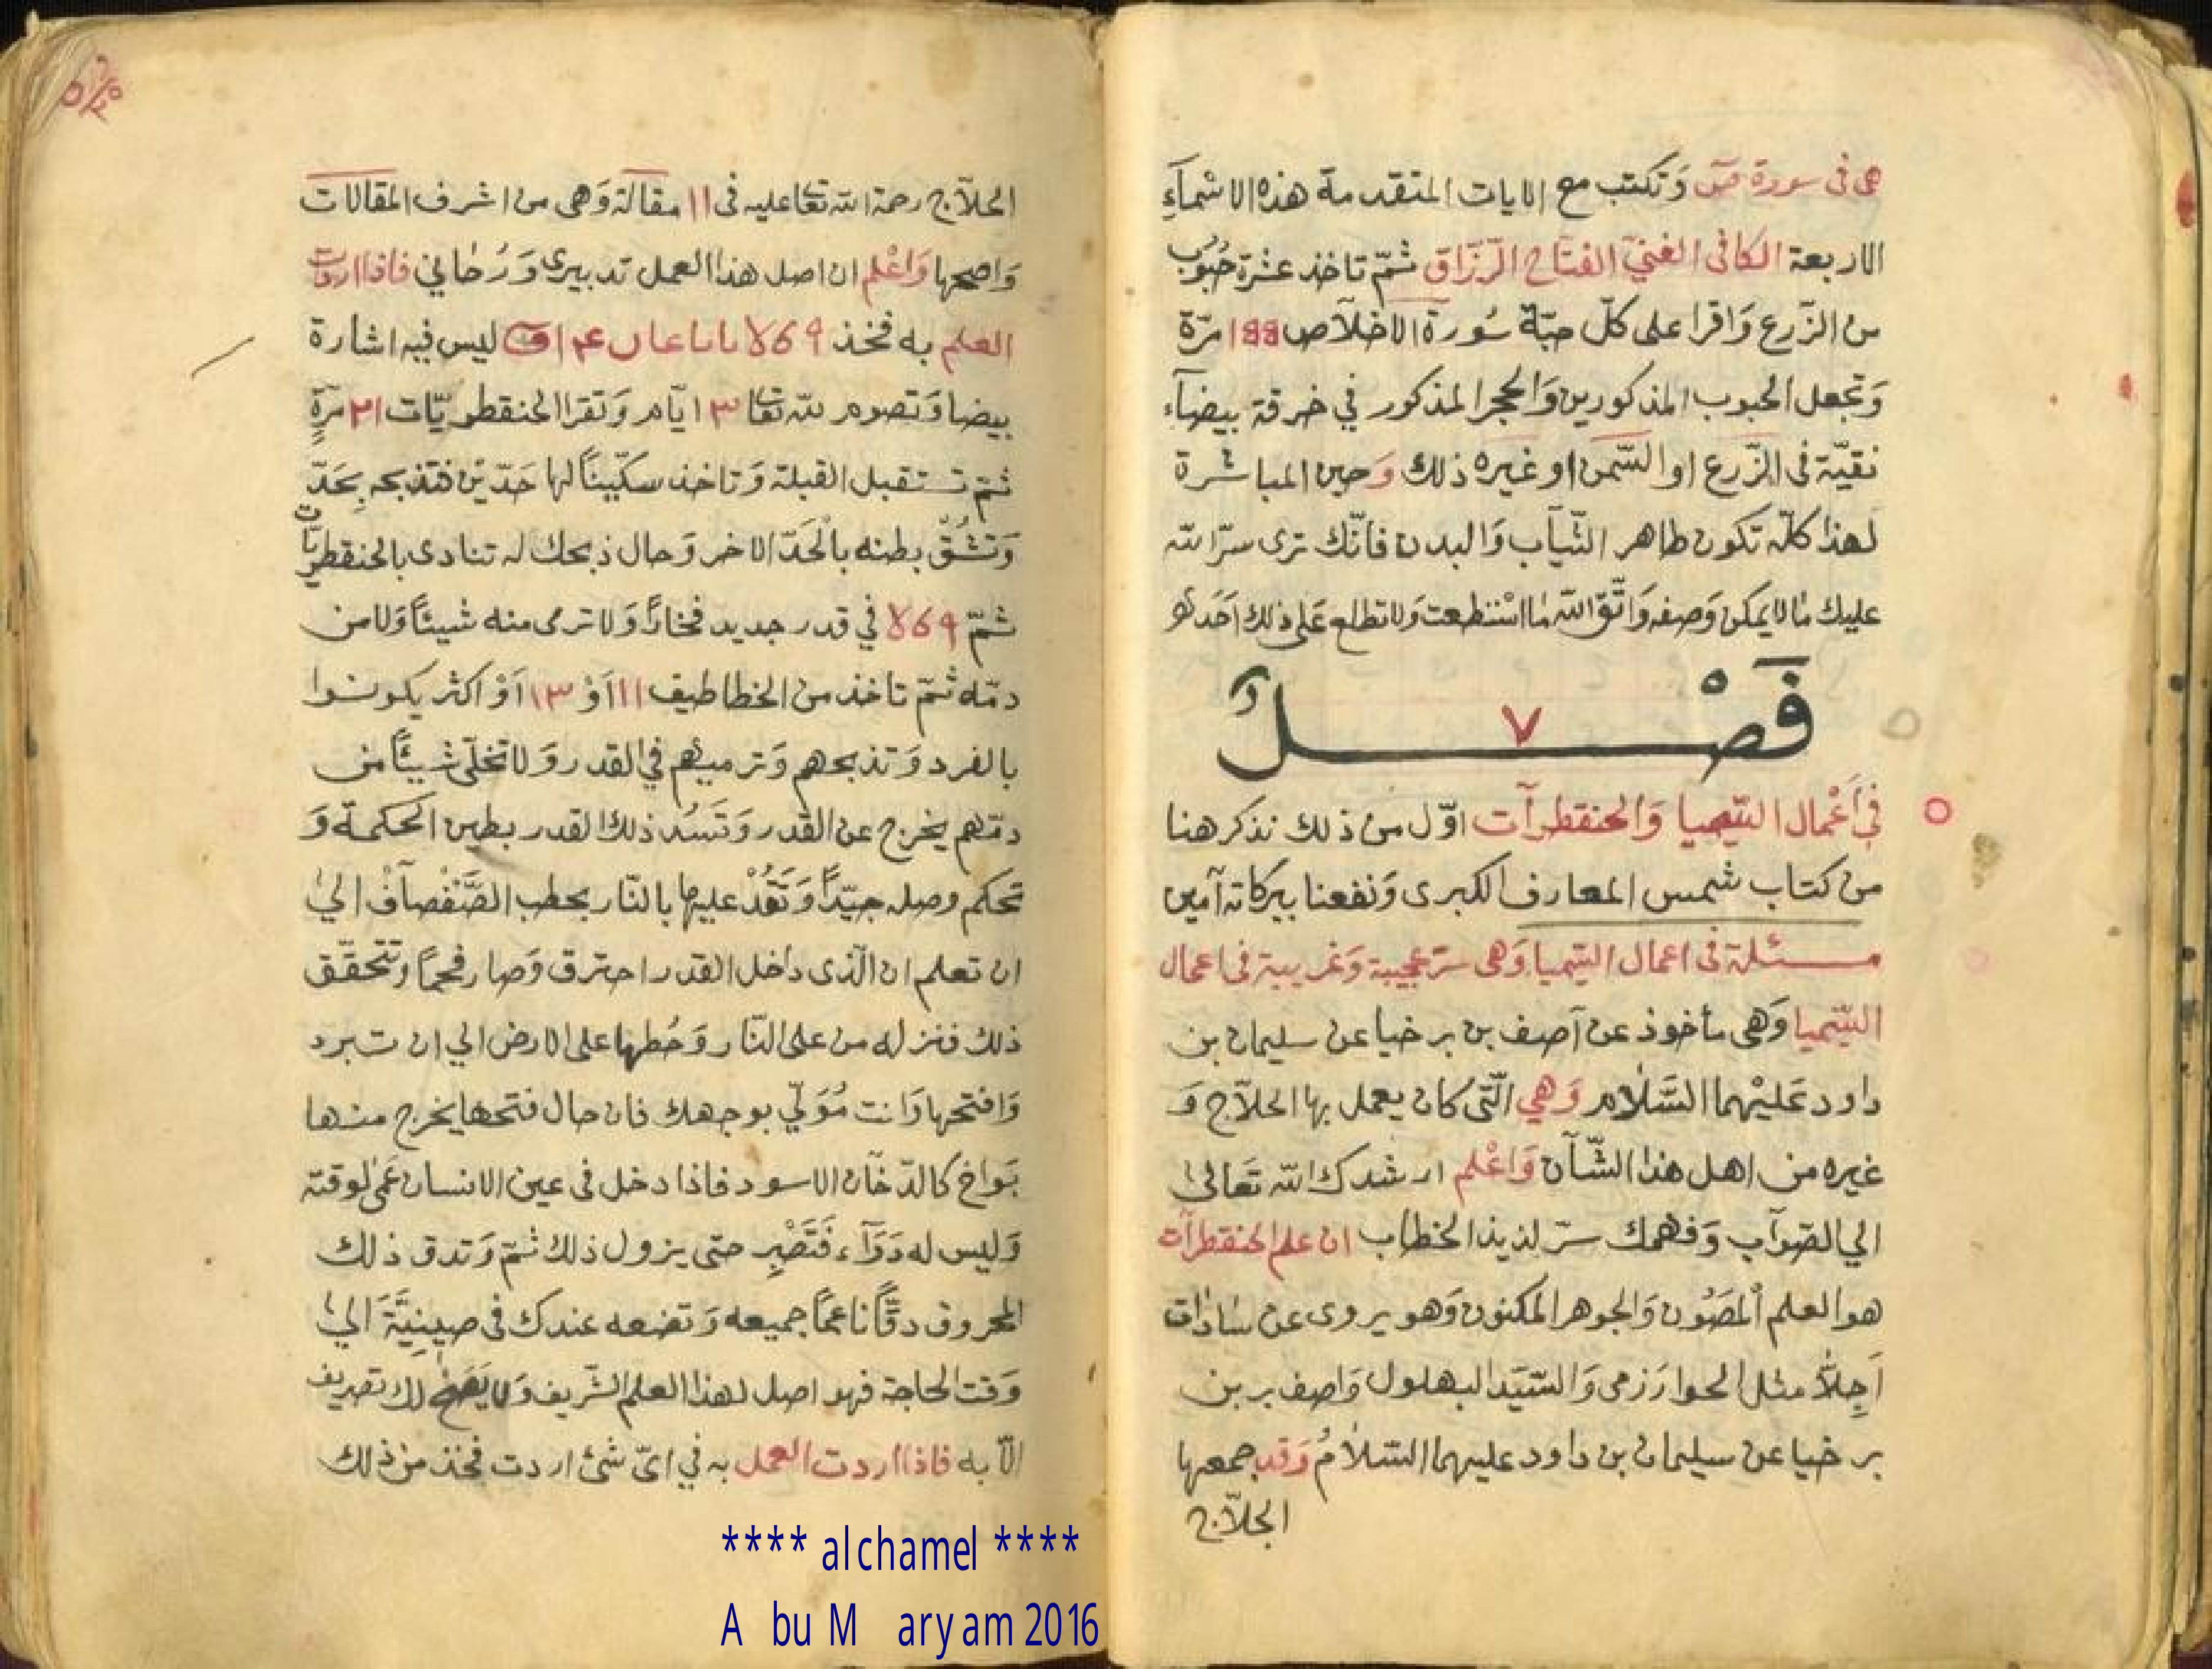 هى فى سورة صۤ وَتكتب مع الايات المتقدمة هذه الاسْمآءِ
الاربعة الكافى الغنىّ الفتاح الرّزاق ثمّ تاخذ عشرة حُبُوب
من الزّرع وَاقرا على كلّ حبّة سُورة الاخلآص مرّة
وَتجعل الحبوب المذكورين وَالحجر المذكور في خرقة بيضآء
نقيّة فى الزّرع او السّمن او غيره ذلك وَحين المباشرة
لهذا كلّه تكون طاهر الثّيآب وَالبدن فانّك ترى سرّ الله
عليك مالا يمكن وَصفه وَاتّق الله ما اسْتطعت وَلا تطلع عَلى ذلك اَحَد
فَصْلٌ ٧
فى اَعْمال السّيميا وَالخنقطرآت اوّل من ذلك نذكر هنا
من كتاب شمس المعارف الكبرى وَنفعنا ببركاته آمين
مسئلة فى اعمال السّيميا وَهى سرّ عجيبة وَغريبة فى اعمال
السّيميا وَهى مأخوذ عن آصف بن برخيا عن سليمان بن
داود عَليْهما السَّلام وَهي الّتى كان يعمل بها الحلاّج وَ
غيره من اهل هذا الشّآن وَاعْلم ارشدك الله تَعَالىٰ
الي الصّوآب وَفهمك سرّ لذيذ الخطاب ان علم الخنقطرآت
هو العلم اْلمصُون وَالجوهر المكنون وَهو يروى عن سادات
اَجِلاّ مثل الحوارَزمى وَالسّيّد البهلول وَاصف بر بن
برخيا عن سيلمان بن داود عليهما السّلامُ وَقد جمعها
الحلاّج
الحلاّج رحمة الله تعا عليه فى ١١ مقالة وَهى من اشرف المقالات
وَاصحها وَاعْلم ان اصل هذا العمل تدبيرى وَرُحاني فاذا اردت
العلم به فخذ ليس فيه اشارة
بيضا وَتصوم لله تعا ١٣ ايّام وَتقرا الخنقطريّات ٢١ مرّةٍ
ثمّ تستقبل القبلة وَتاخذ سكّينًا لها حَدّيْن فتذبحه بِحَدّ
وَتشُقّ بطنه بالْحَدّ الاخر وَحال ذبحك له تنادى بالخنقطريّات
ثمّ في قدر جديد فخارًا وَلا ترمى منه شيئًا وَلا من
دمّه ثمّ تاخذ من الخطاطيف ١١ اَوْ ١٣ اَوْ اكثر يكونوا
بالفرد وَتذبحهم وَترميهم في القدر وَلا تخلّى شيئًا من
دمّهم يخرج عن القدر وَتَسُد ذلك القدر بطين الحكمة وَ
تحكم وصله جيّدًا وَتَقُدْ عليها بالنّار بحطب الصَّفْصآفْ الىٰ
ان تعلم ان الّذى داخل القدر احترق وَصار فحمًا وتتحقّق
ذلك فنزله من على النّار وَحُطها على الارض الي ان تبرد
وَافتحها وَانت مُوَلّي بوجهك فان حال فتحها يخرج منها
بَواخ كالدّخّان الاسود فاذا دخل فى عين الانسان عَمَىٰ لوقته
وَليس له دَوَآء فَتَصْبِر حتى يزول ذلك ثمّ وَتدق ذلك
المحروق دقًّا ناعمًا جميعه وَتضعه عندك فى صينيَّة الىٰ
وَقت الحاجة فهو اصل لهذا العلم الشّريف وَلا يصحّ لك تصريف
الاّ به فاذا اردت العمل به في اىّ شئ اردت فخذ من ذلك
**** alchamel ****
Abu Maryam 2016